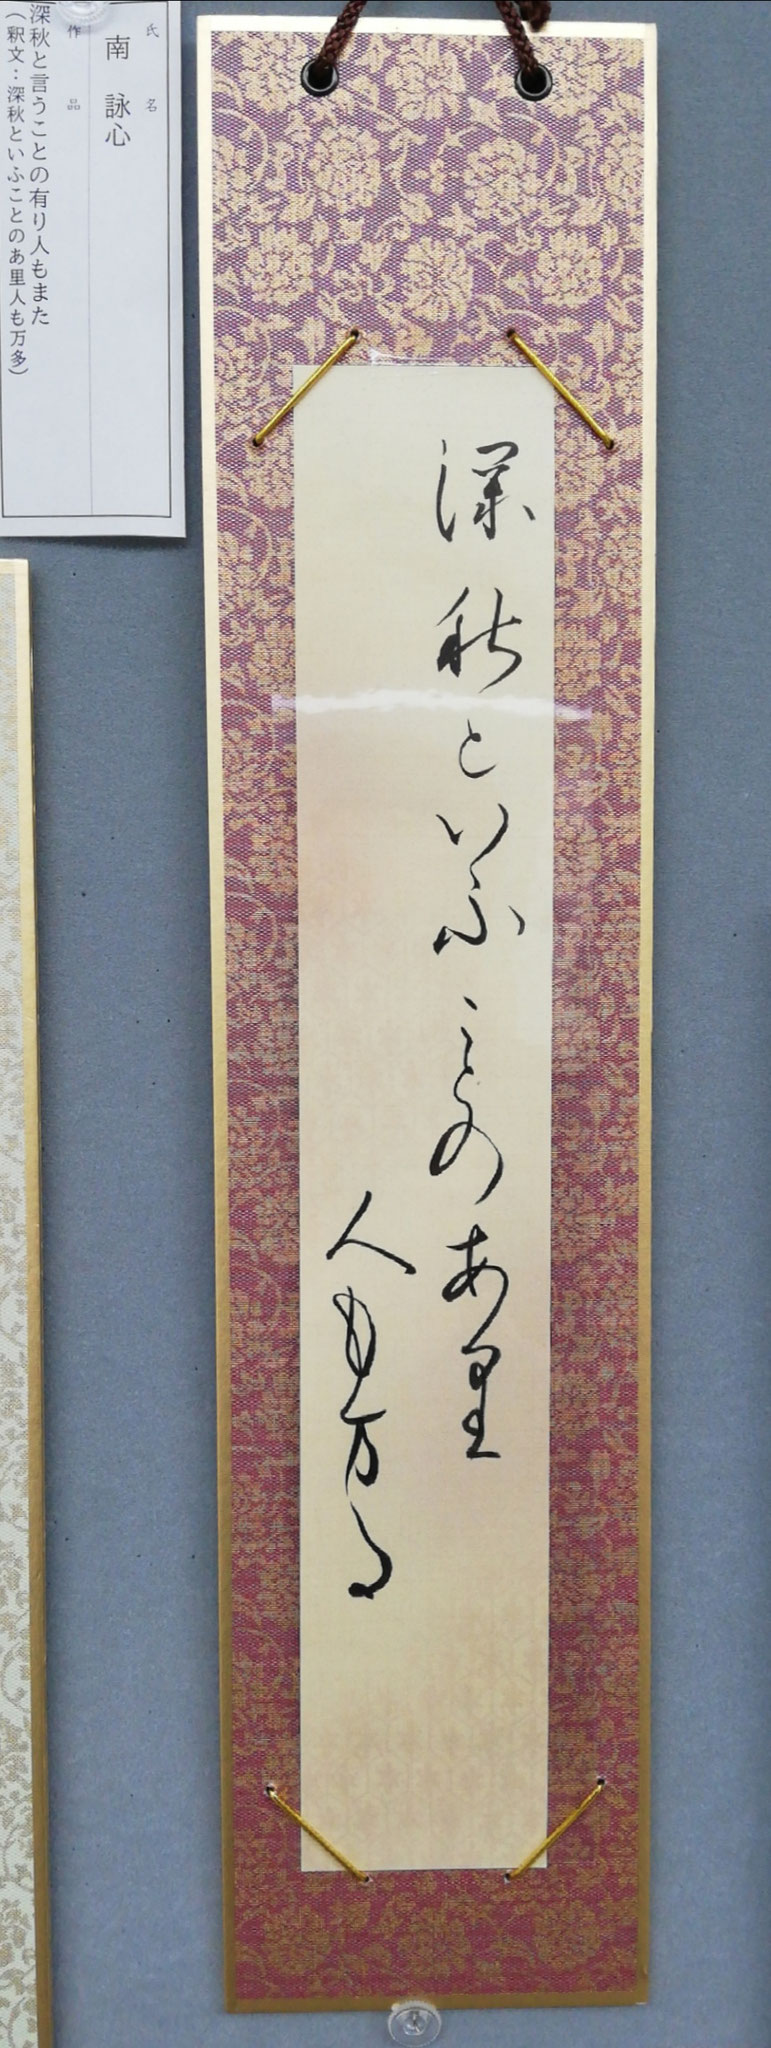 氏名
南 詠心
作品
深秋と言うことの有り人もまた
(釈文:深秋といふことのあ里人も万多)
深秋といふことのあ里
人も万多